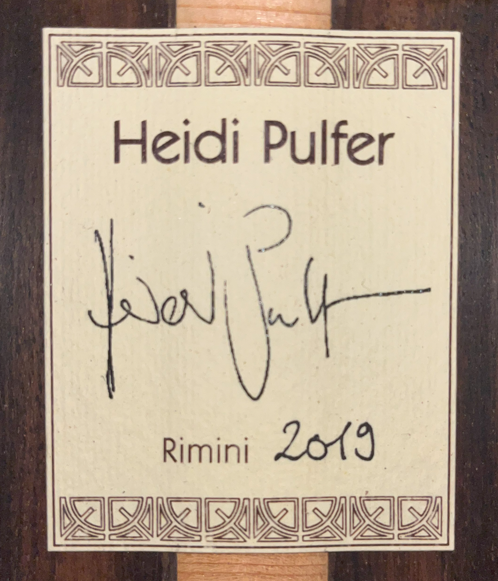 Heidi Pulfer
Heidi Pulfer
Rimini 2019